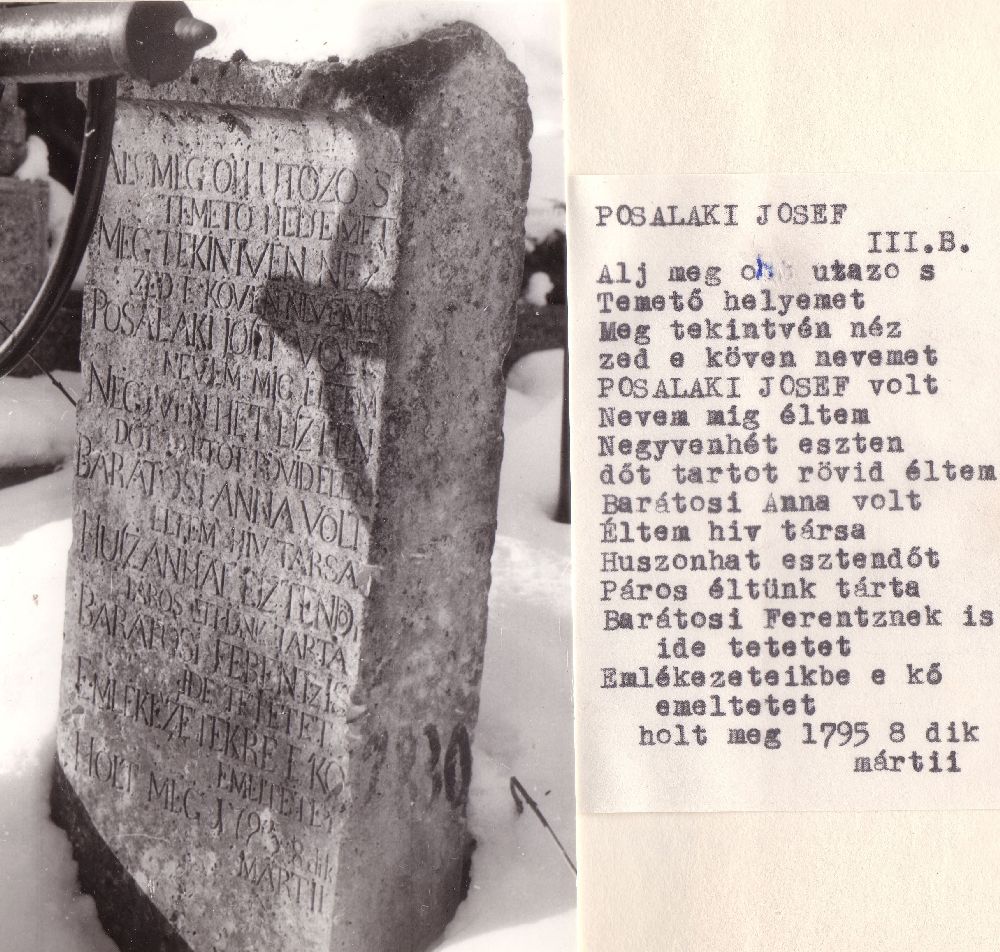 ALJ MEG OH UTOZO S
TEMETO HELJEMET
MEG TEKINTVEN NEZ
ZED E KÖVEN NEVEMET
POSALAKI JOSEF VOLT
NEVEM MIG ELTEM
NEGYVEN HET ESZTEN
DÖT TARTOT RÖVID ELTEM
BARATOSI ANNA VOLT
ELTEM HIV TARSA
HUSZANHAT ESZTENDÖT
PAROS ELTÜNK TARTA
BARATOSI FERENTZ IS
IDE TETETET
EMLEKEZETEKRE E KÖ
EMELTETET
HOLT MEG 1795 8 dik
MARTII
30
POSALAKI JOSEF
III.B.
Alj meg oh utazo s
Temető helyemet
Meg tekintvén néz
zed e köven nevemet
POSALAKI JOSEF volt
Nevem mig éltem
Negyvenhét eszten
dőt tartot rövid éltem
Barátosi Anna volt
Éltem hiv társa
Huszonhat esztendőt
Páros éltünk tárta
Barátosi Ferentznek is
ide tetetet
Emlékezeteikbe e kő
emeltetet
holt meg 1795 8 dik
mártii